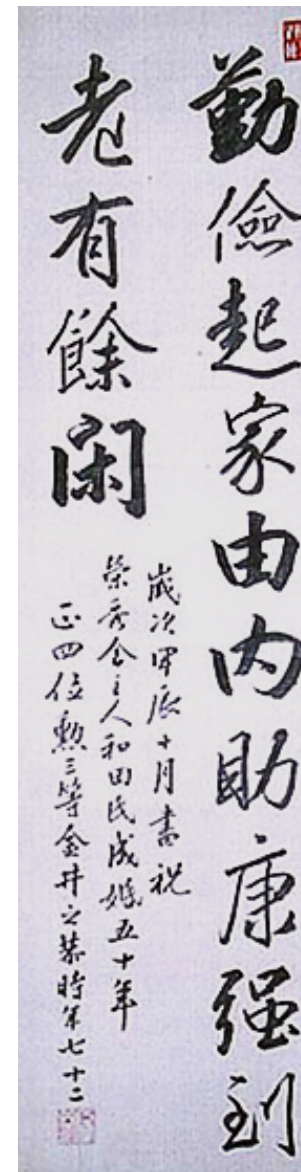 勤儉起家由内助康強到
老有餘閑
歳次甲辰十月書祝
榮秀舎主人和田氏成婚五十年
正四位勲三等金井之恭時年七十二